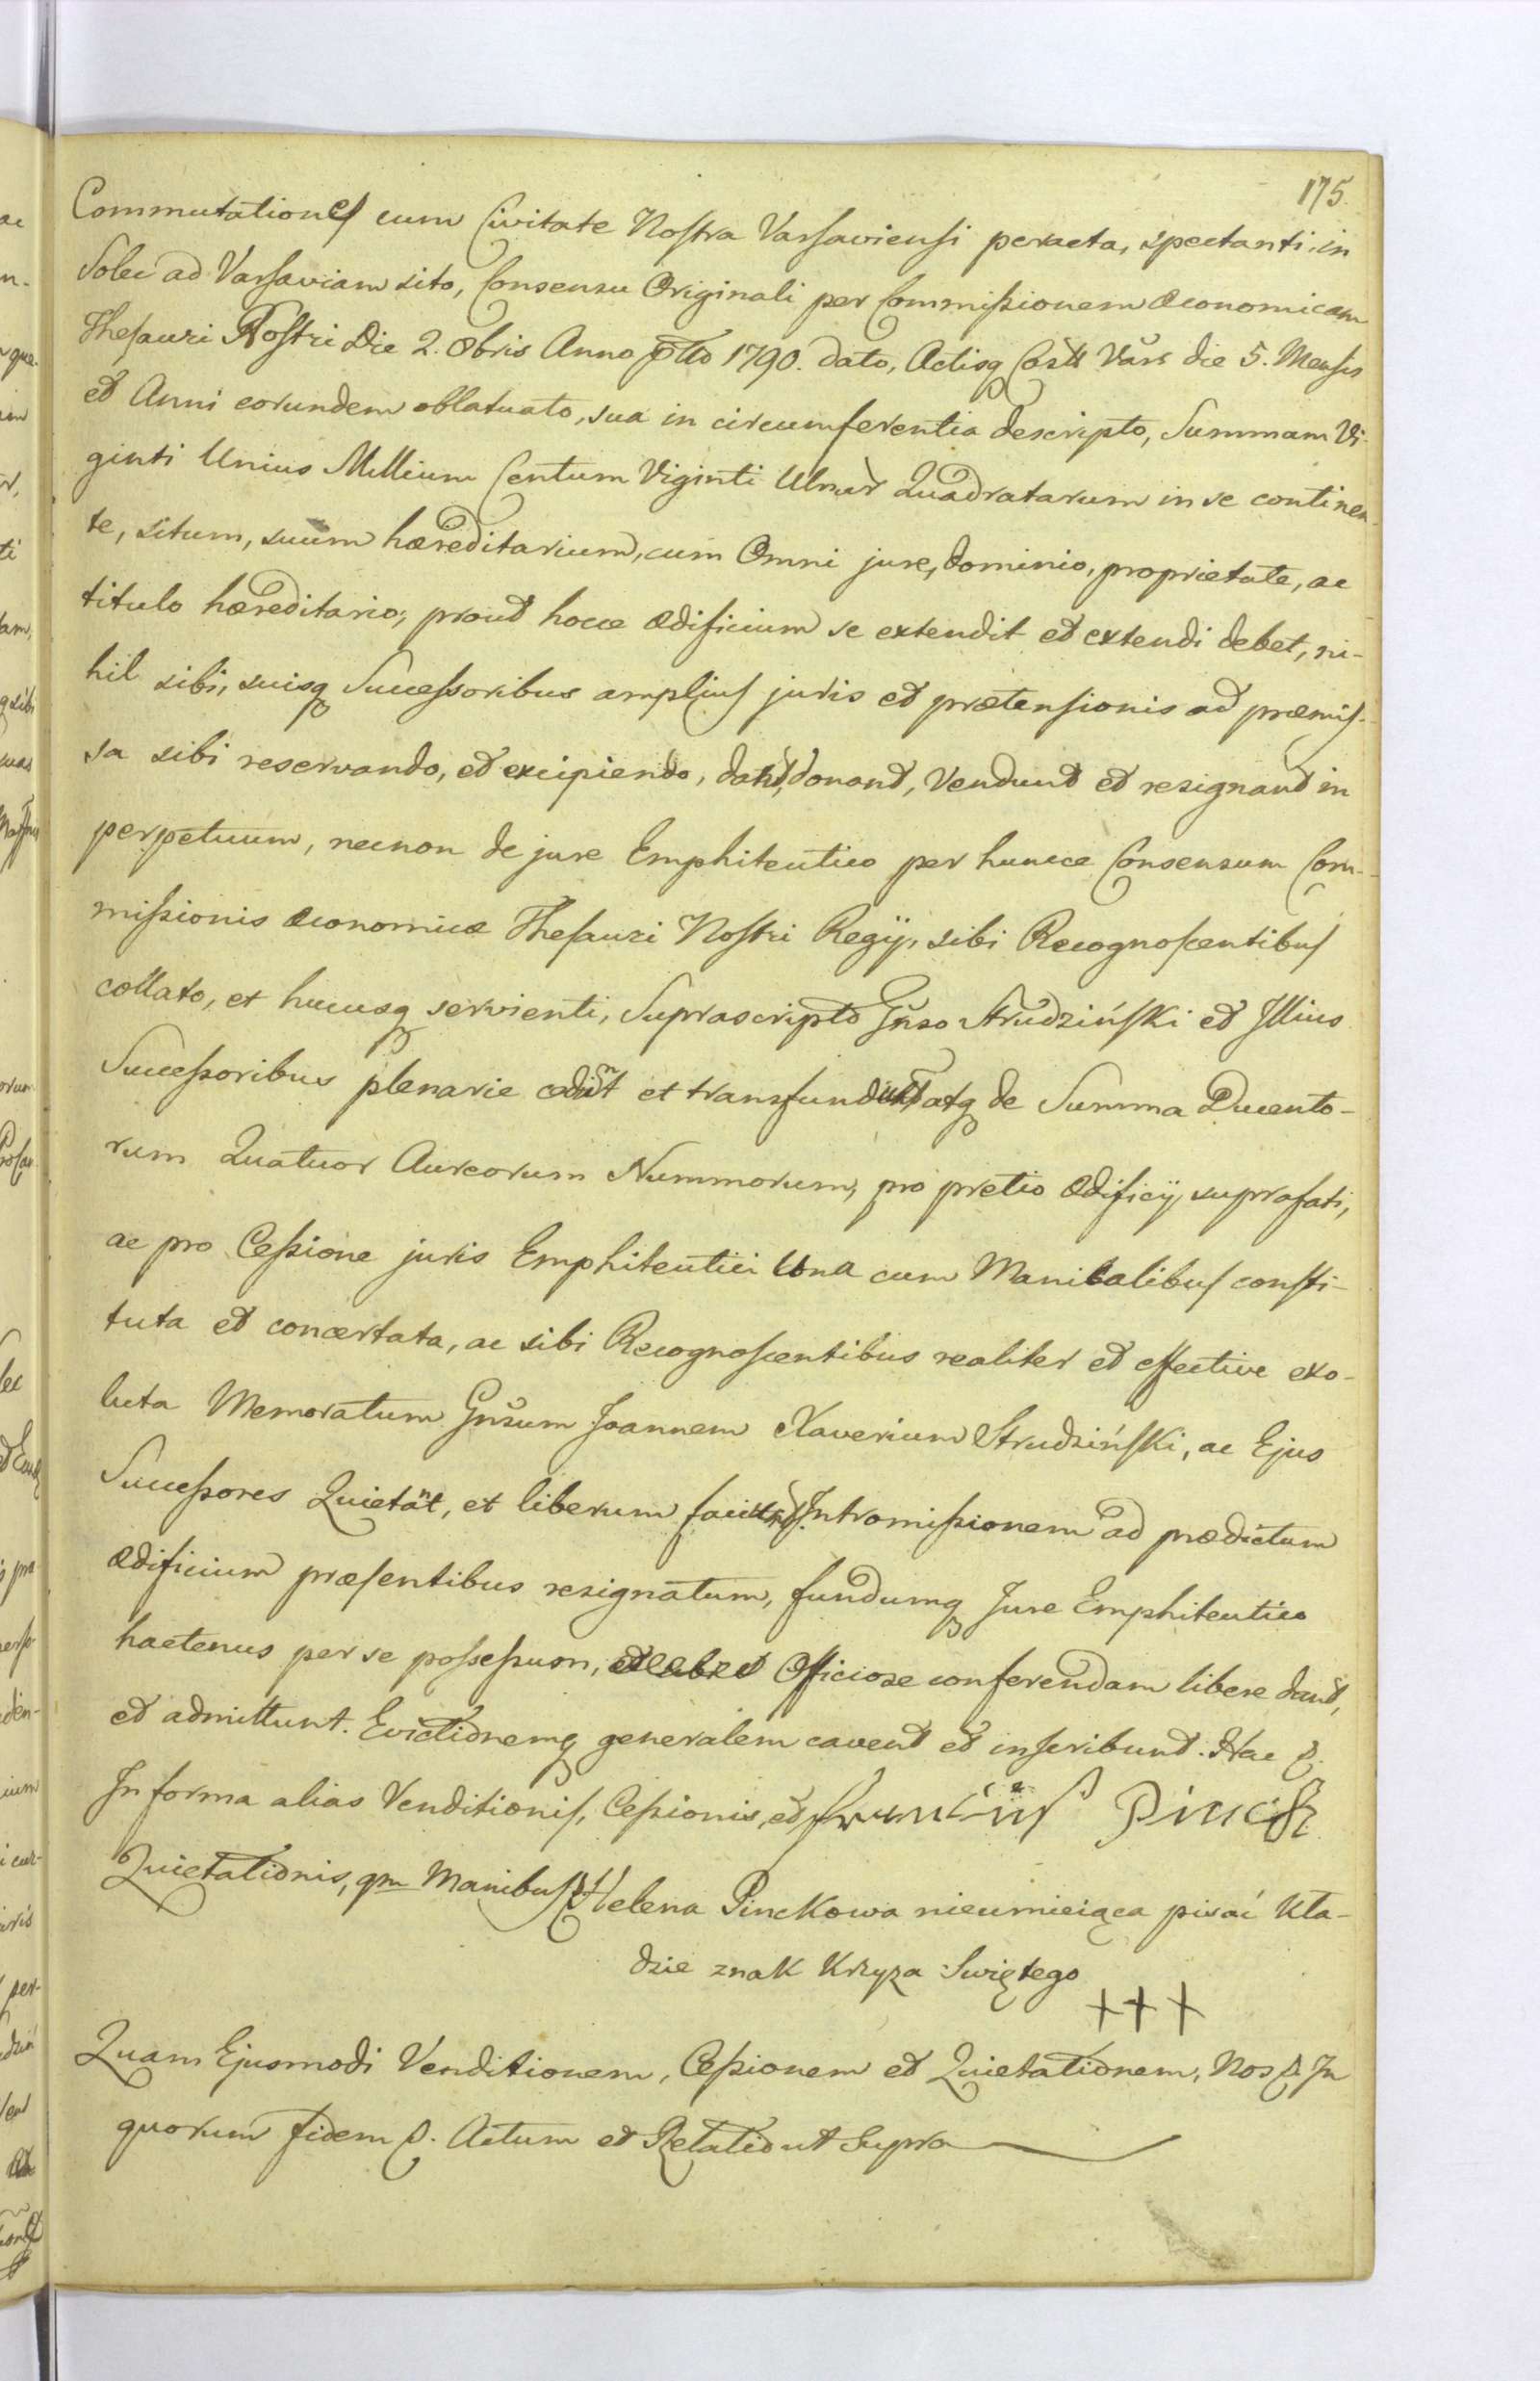 175.
Commutationes cum Civitate Nostra Varsaviensi peracta, spectanti, in
Solec ad Varsaviam sito, Consensu Originali per Commissionem Œconomicam
Thesauri Nostri Die 2. 8bris Anno pttō 1790. dato, Actisq Cōstt Vārs die 5. Mensis
et Anni eorundem oblatuato, sua in circumferentia descripto, Summam Vi-
ginti Unius Millium Centum Viginti Ulnar Quadratarum in se continen-
te, situm, suum hæreditarium, cum Omni jure, dominio, proprietate, ac
titulo hæreditario; prout hocce ædificium se extendit et extendi debet, ni-
hil sibi, suisq Successoribus amplius juris et prætensionis ad præmis-
sa sibi reservando, et excipiendo, dant, donant, Vendunt et resignant in
perpetuum, necnon de jure Emphiteutico per huncce Consensum Com-
missionis Œconomicæ Thesauri Nostri Regij, sibi Recognoscentibus
collato, et hucusq servienti, Suprascripto Gnso Strudziński et Illius
Successoribus plenarie cedunt et transfundunt atq de Summa Ducento-
rum Quatuor Aureorum Nummorum, pro pretio Ædificij suprafati,
ac pro Cessione juris Emphiteutici Una cum Manibalibus consti-
tuta et concertata, ac sibi Recognoscentibus realiter et effective exo-
luta Memoratum Gnsum Joannem Xaverium Strudziński, ac Ejus
Successores Quietant, et liberum faciunt. Intromissionem ad prædictum
ædificium præsentibus resignatum, fundumq Jure Emphiteutico
hactenus per se possessum, Officiose conferendam libere dant,
et admittunt. Evictionemq generalem cavent et inscribunt. Hac p.
In forma alias Venditionis, Cessionis, et
Quietationis, qm Manibus p Helena Pinckowa nieumieiąca pisać kła-
dzie znak Krzyza Swiętego
+ + +
Quam Ejusmodi Venditionem, Cessionem et Quietationem, Nos p. In
quorum fidem p. Actum et Relatio ut Supra